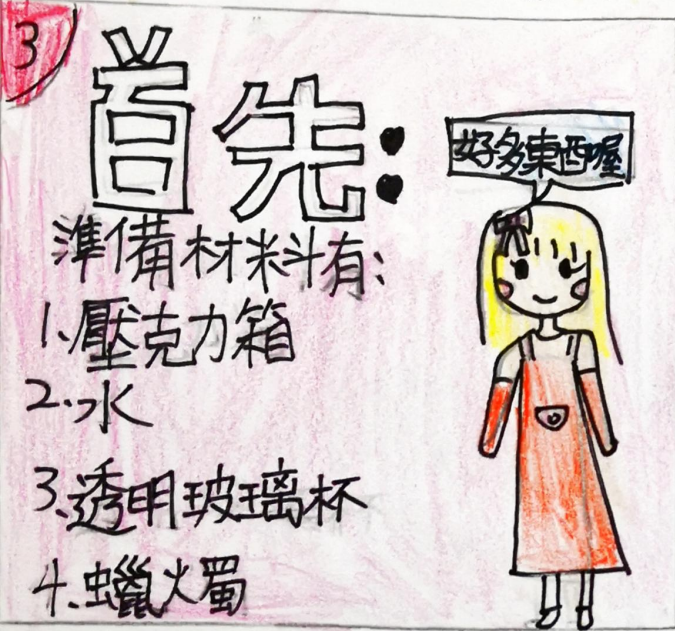 3
首先:
好多東西喔
準備材料有:
1.壓克力箱
2.水
3.透明玻璃杯
4.蠟燭